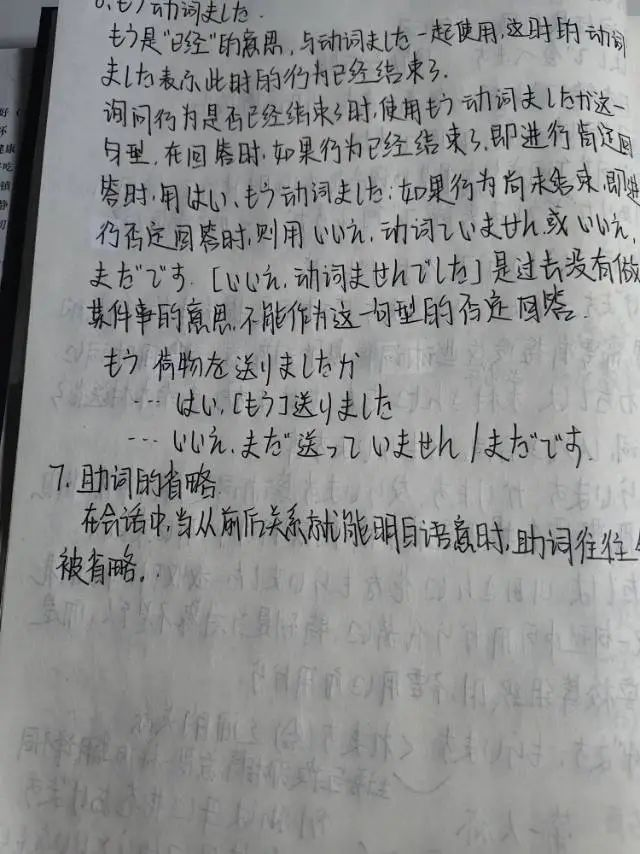 6、もう动词ました.
もう是"已经"的意思,与动词ました一起使用,这时的动词
ました表示此时的行为已经结束了.
询问行为是否已经结束了时,使用もう动词ましたか这一
句型,在回答时,如果行为已经结束了,即进行肯定回
答时,用はい、もう动词ました;如果行为尚未结束,即进
行否定回答时,则用いいえ,动词ていません或いいえ,
まだです.[いいえ,动词ませんでした]是过去没有做
某件事的意思,不能作为这一句型的否定回答.
もう荷物を送りましたか
…はい,[もう]送りました
…いいえ,まだ送っていません/まだです.
7.助词的省略
在会话中,当从前后关系就能明白语意时,助词往往
被省略..